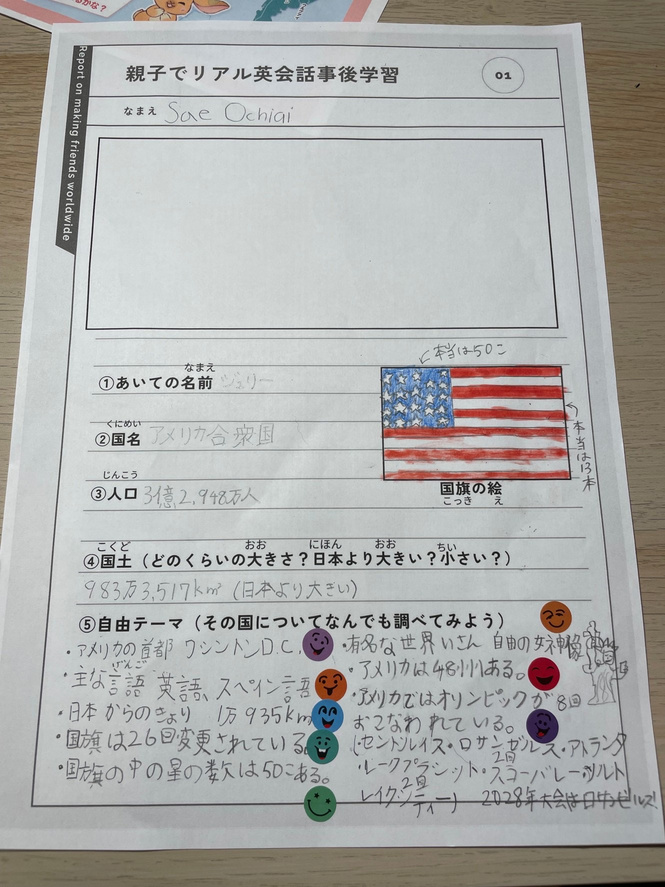 るかな？
Report on making friends worldwide
親子でリアル英会話事後学習
01
なまえ Sae Ochiai
本当は50こ
なまえ
①あいての名前 ジェリー
くにめい
②国名 アメリカ合衆国
じんこう
③人口 3億2,948万人
本当は13本
国旗の絵
こっき え
こくど おお にほん おお ちい
④国土（どのくらいの大きさ？日本より大きい？小さい？）
983万3,517km²（日本より大きい）
⑤自由テーマ（その国についてなんでも調べてみよう）
・アメリカの首都 ワシントンD.C.
げんご
・主な言語 英語、スペイン語
・日本からのきょり 1万935km
・国旗は26回変更されている。
・国旗の中の星の数は50こある。
・有名な世界いさん 自由の女神像
・アメリカは48州ある。
・アメリカではオリンピックが8回
おこなわれている。
(・セントルイス・ロサンゼルス・アトランタ
2回
・レークプラシット・スコーバレー・ソルト
2回
レイクシティー) 2028年大会はロサンゼルス!